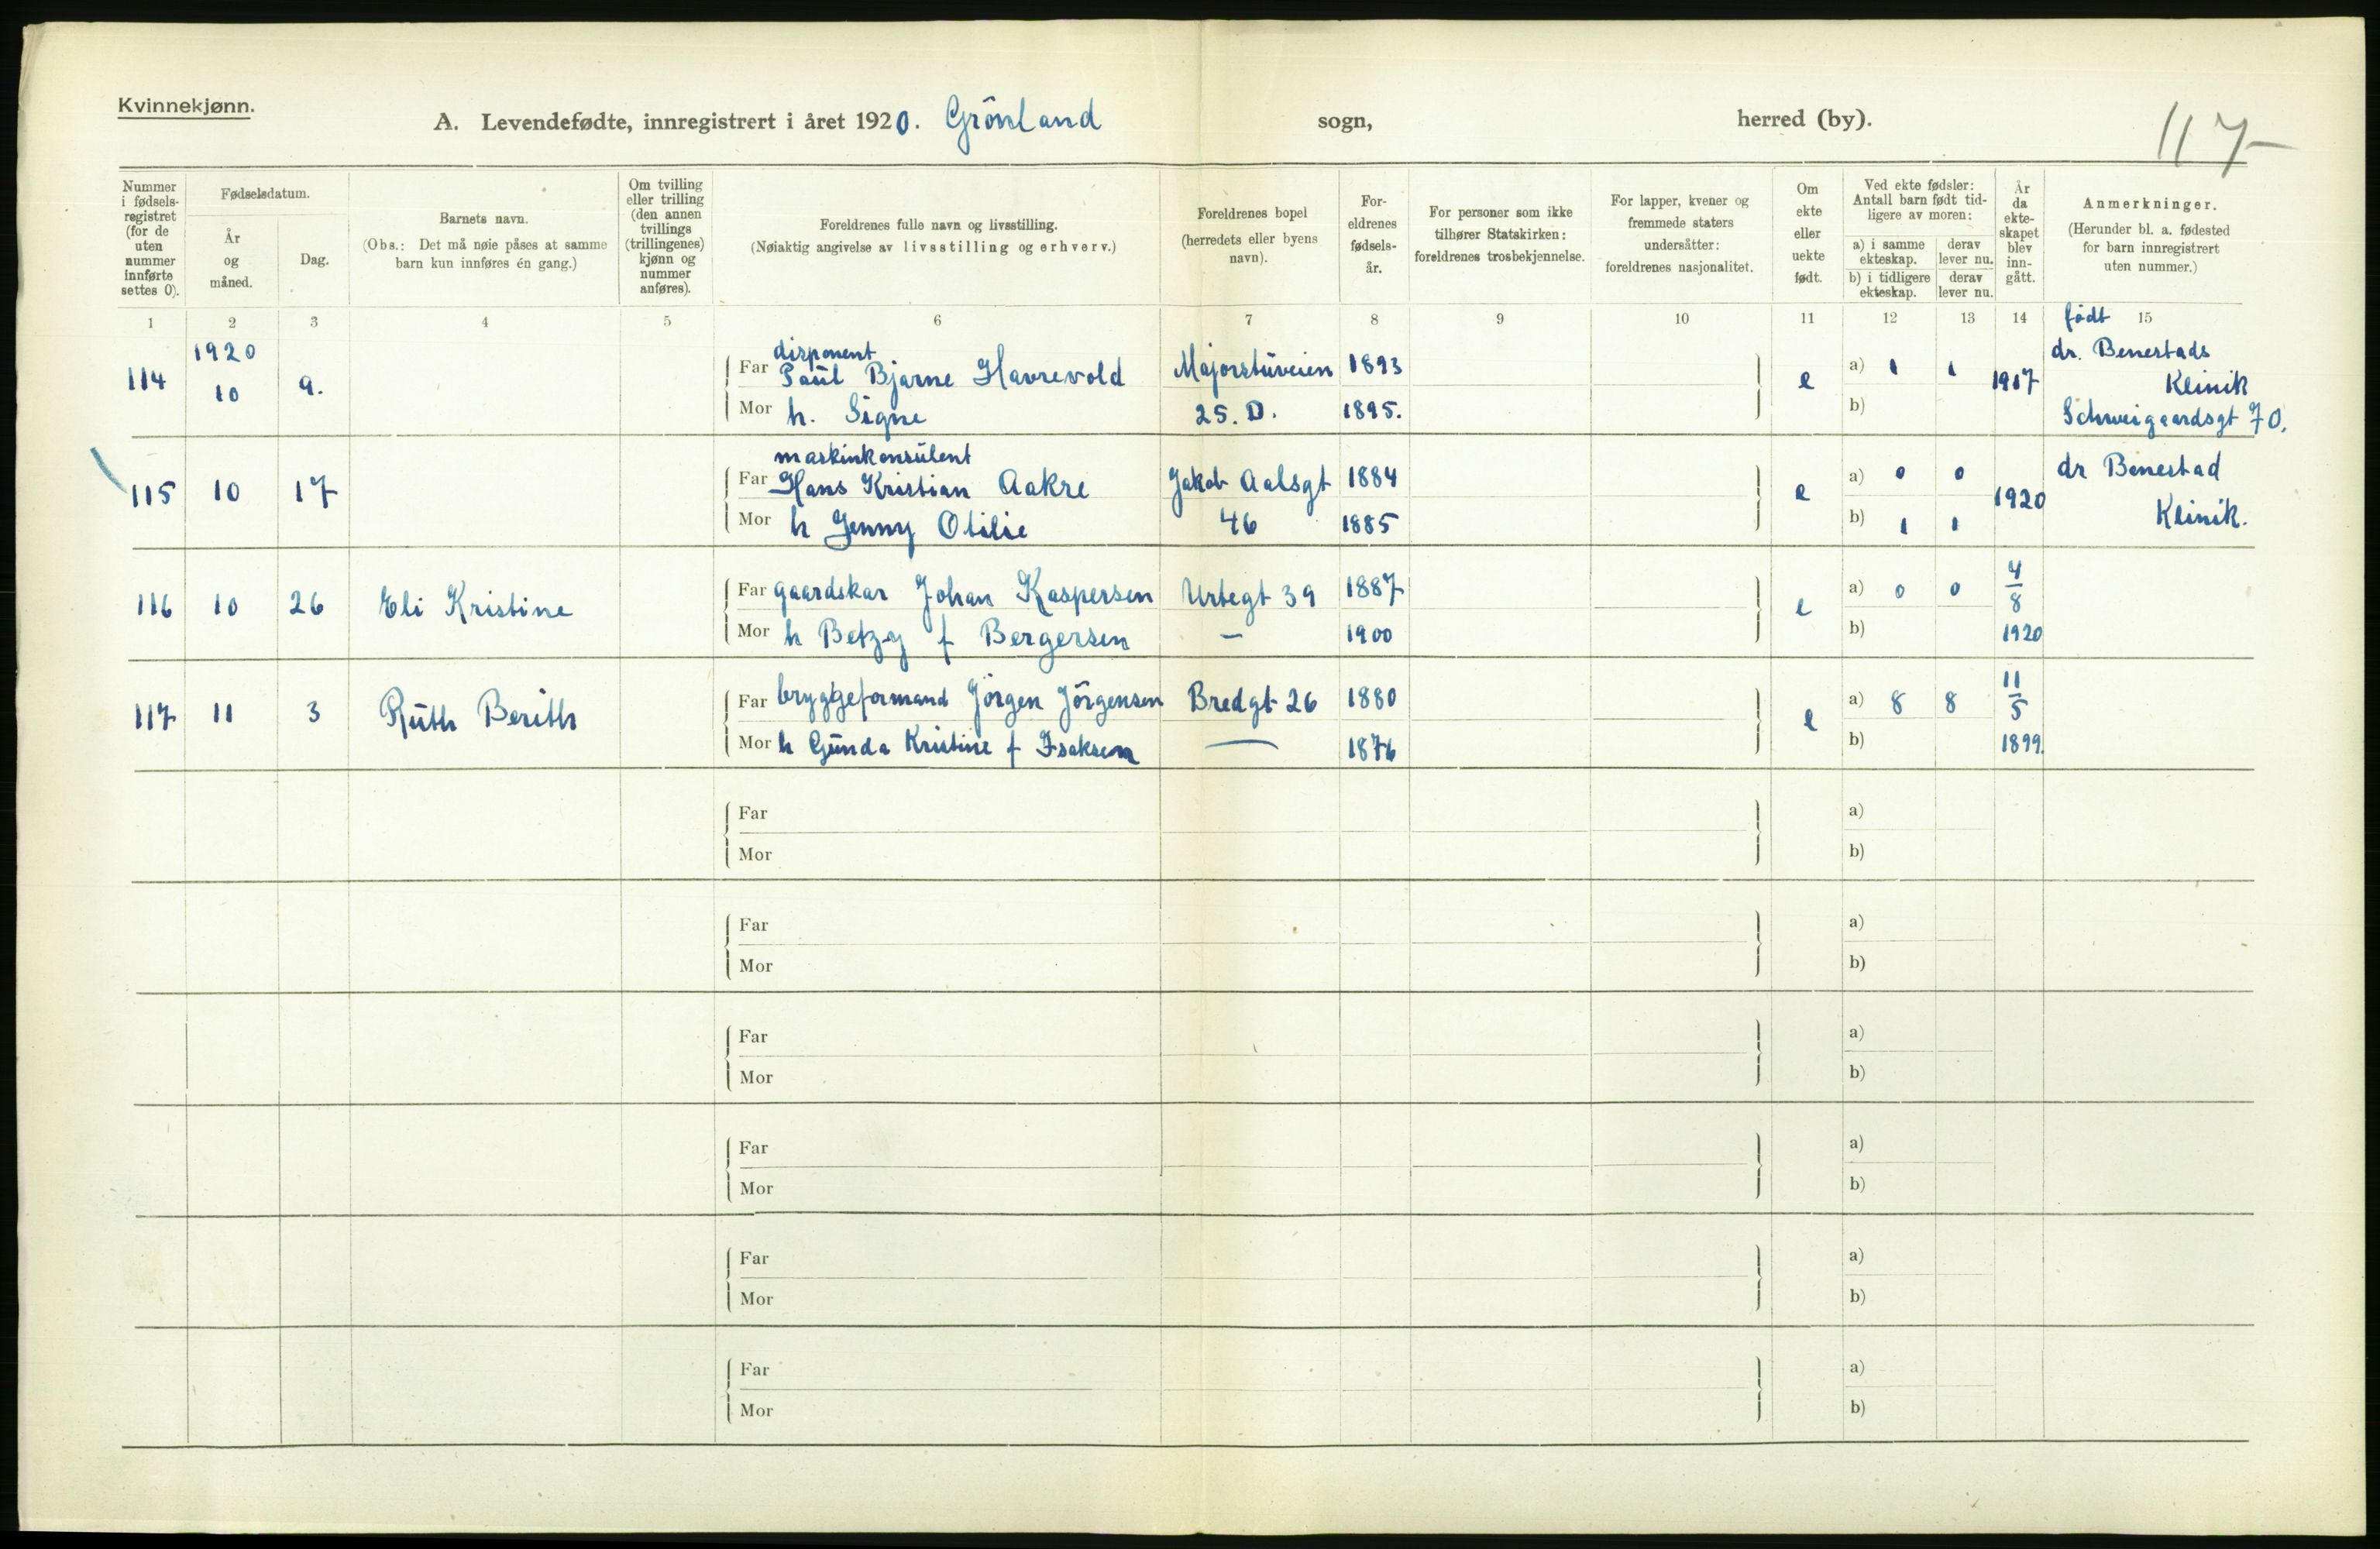 Kvinnekjønn.
A. Levendefødte, innregistrert i året 1920. Grönland sogn, herred (by).
117
Nummer i fødselsregistret (for de uten nummer innførte settes 0).
Fødselsdatum.
År og måned.
Dag.
Barnets navn.
(Obs.: Det må nøie påses at samme barn kun innføres én gang.)
Om tvilling eller trilling (den annen tvillings (trillingenes) kjønn og nummer anføres).
Foreldrenes fulle navn og livsstilling.
(Nøiaktig angivelse av livsstilling og erhverv.)
Foreldrenes bopel (herredets eller byens navn).
Foreldrenes fødselsår.
For personer som ikke tilhører Statskirken: foreldrenes trosbekjennelse.
For lapper, kvener og fremmede staters undersåtter: foreldrenes nasjonalitet.
Om ekte eller uekte født.
Ved ekte fødsler: Antall barn født tidligere av moren:
a) i samme ekteskap. derav lever nu.
b) i tidligere ekteskap. derav lever nu.
År da ekteskapet blev inngått.
Anmerkninger.
(Herunder bl. a. fødested for barn innregistrert uten nummer.)
1 2 3 4 5 6 7 8 9 10 11 12 13 14 15
114 1920 10 9.
disponent
Far Paul Bjarne Havrevold Majorstuveien 1893
Mor h. Signe 25. D. 1895.
e a) 1 1 1917
b)
født
dr. Benestads
Klinik
Schweigaardsgt 70.
115 10 17
maskinkonsulent
Far Hans Kristian Aakre Jakob Aalsgt 1884
Mor h Jenny Otilie 46 1885
e a) 0 0 1920
b) 1 1
dr Benestad
Klinik.
116 10 26 Eli Kristine
Far gaardskar Johan Kaspersen Urtegt 39 1887
Mor h Betzy f Bergersen — 1900
e a) 0 0 4/8 1920
b)
117 11 3 Ruth Berith
Far bryggeformand Jörgen Jörgensen Bredgt 26 1880
Mor h Gunda Kristine f Isaksen — 1876
e a) 8 8 11/5 1899.
b)
Far a)
Mor b)
Far a)
Mor b)
Far a)
Mor b)
Far a)
Mor b)
Far a)
Mor b)
Far a)
Mor b)